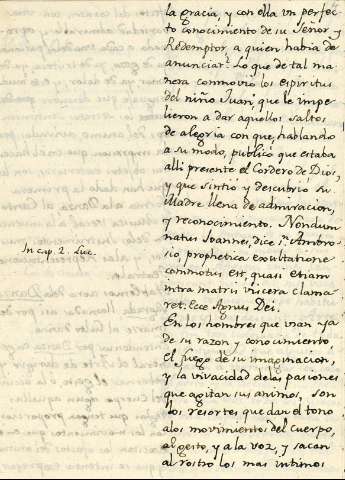 la gracia, y con ella un perfec-
to conocimiento de su Señor y
Redemptor a quien havia de
anunciar. Lo que de tal ma
nera commoviò los espiritus
del niño Juan, que le impe-
lieron a dar aquellos saltos
de alegria con que, hablando
a su modo, publicò que estaba
alli presente el Cordero de Dios,
y que sintio y descubrio su
Madre llena de admiracion,
y reconocimiento. Nondum
natus Joannes, dice Sn. Ambro-
In cap. 2. Luc.
sio, prophetica exultatione
commotus est, quasi etiam
intra matris viscera clama
ret. Ecce Agnus Dei.
En los hombres que usan ya
de su razon y conocimiento,
el fuego de su imaginacion,
y la vivacidad de las pasiones
que agitan sus animos, son
los resortes que dan el tono
a los movimientos del cuerpo,
al gesto, y a la voz, y sacan
al rostro los mas intimos